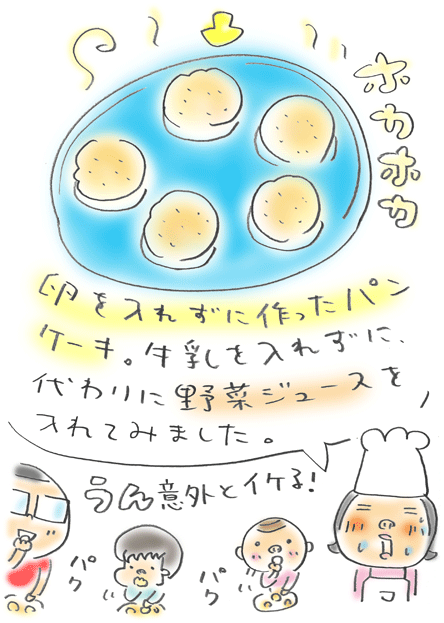 ホカホカ
卵を入れずに作ったパン
ケーキ。牛乳を入れずに、
代わりに野菜ジュースを
入れてみました。
うん意外とイケる!
パク
パク